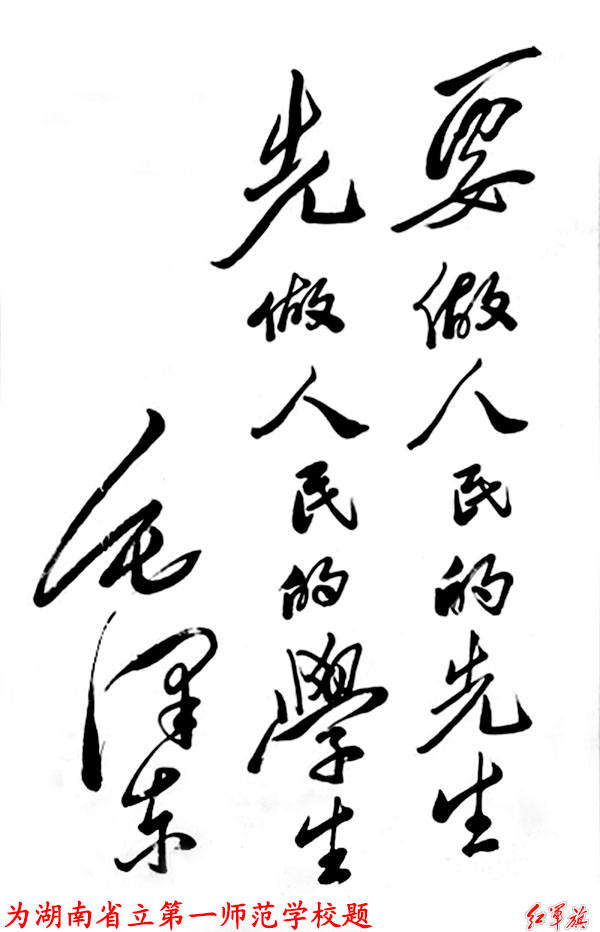 要做人民的先生
先做人民的學生
毛泽东
为湖南省立第一师范学校题
红军旗